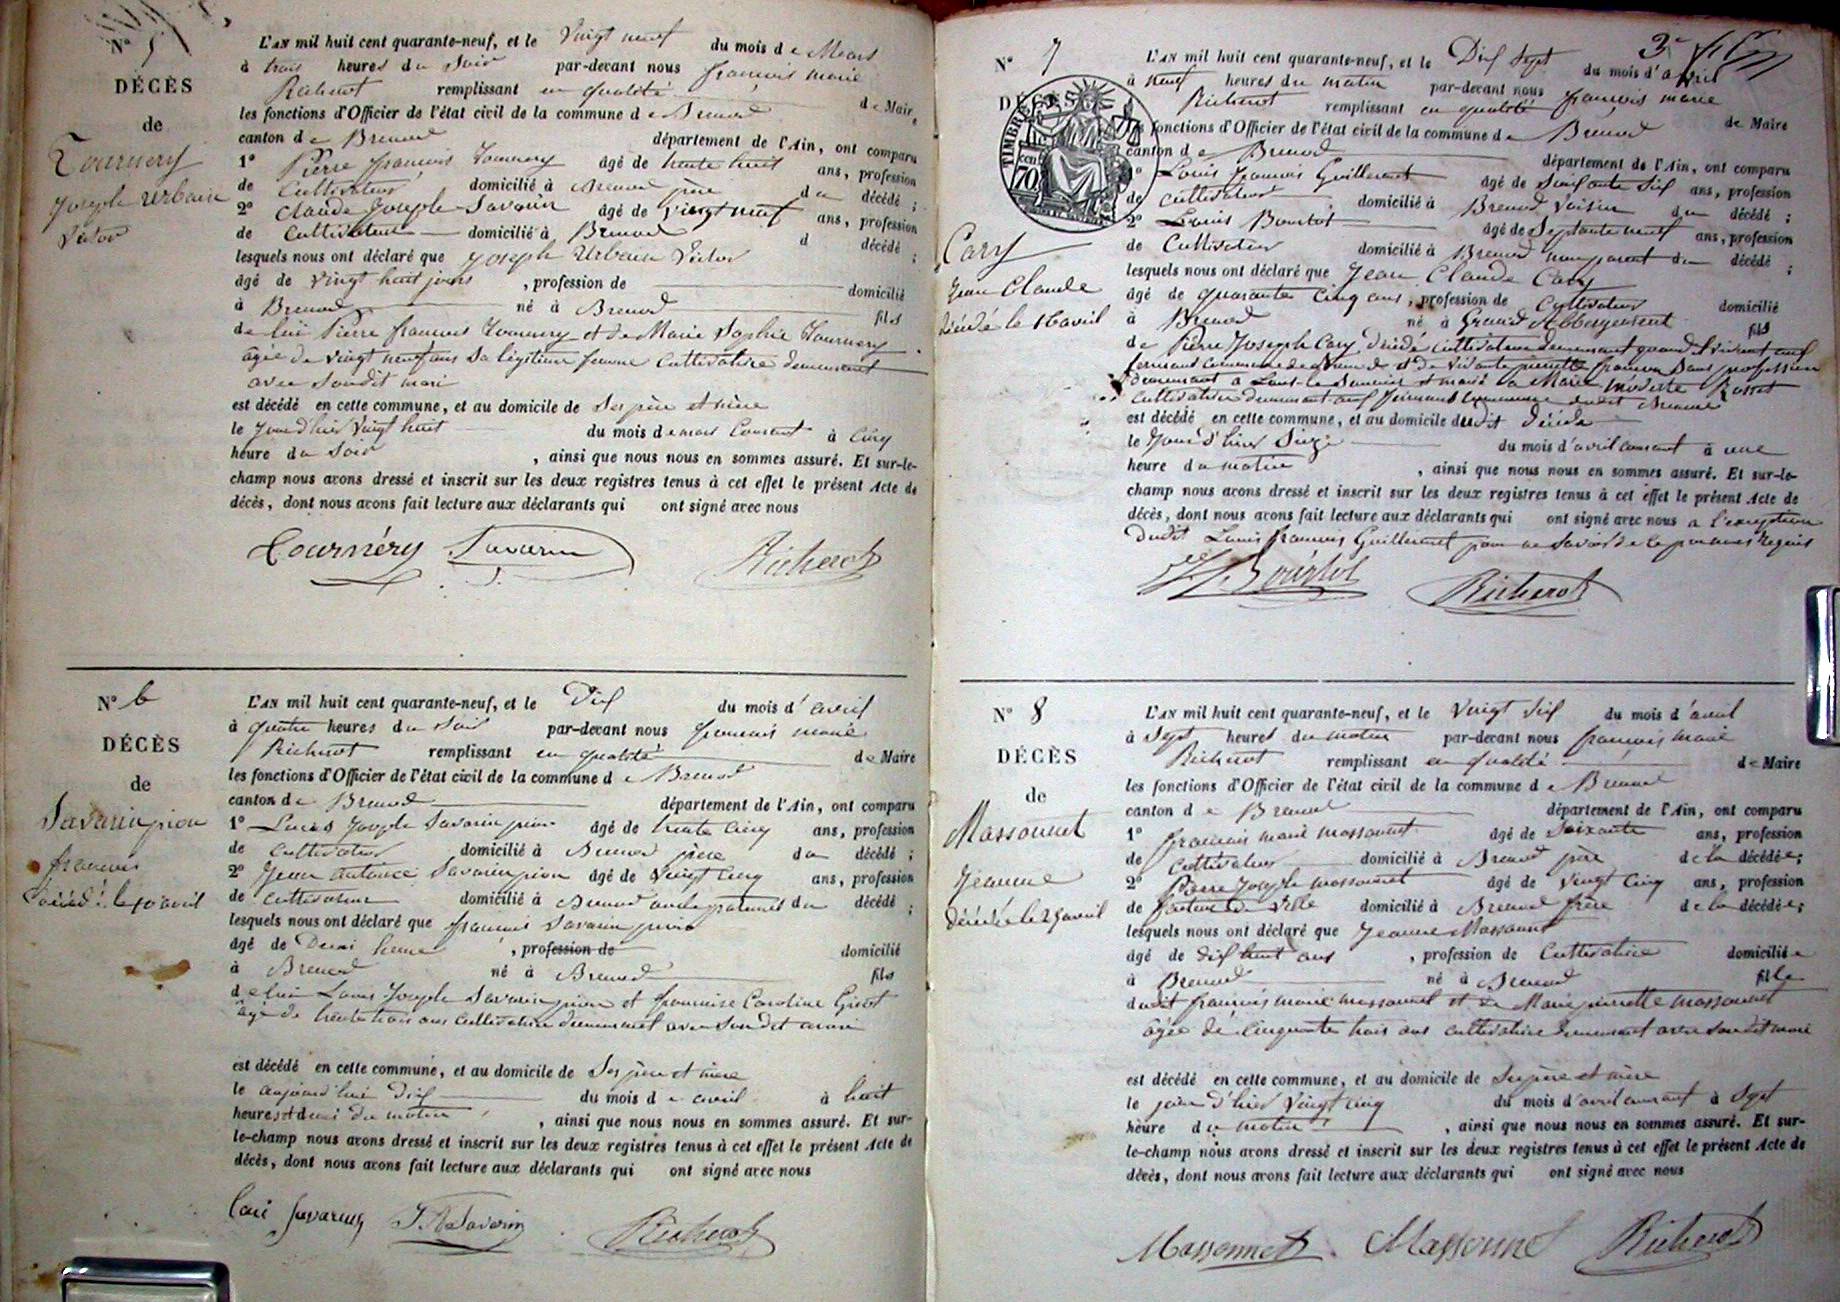 N° 5
DÉCÈS
de
Tournery
Joseph Urbain
Victor
L'AN mil huit cent quarante-neuf, et le Vingt neuf du mois de Mars
à trois heures du Soir par-devant nous françois marie
Richerot remplissant en qualité de Maire
les fonctions d'Officier de l'état civil de la commune de Brenod
canton de Brenod département de l'Ain, ont comparu
1° Pierre françois Tournery âgé de trente huit ans, profession
de Cultivateur domicilié à Brenod père du décédé ;
2° Claude Joseph Savarin âgé de vingt neuf ans, profession
de Cultivateur domicilié à Brenod d décédé ;
lesquels nous ont déclaré que Joseph Urbain Victor
âgé de vingt huit jours , profession de domicilié
à Brenod né à Brenod fils
de lui Pierre françois Tournery et de Marie Sophie Tournery
âgée de vingt neuf ans Sa légitime femme Cultivatrice demeurant
avec Sondit mari
est décédé en cette commune, et au domicile de Ses père et mère
le Jour d'hier Vingt huit du mois de mars Courant à Cinq
heure du Soir , ainsi que nous nous en sommes assuré. Et sur-le-
champ nous avons dressé et inscrit sur les deux registres tenus à cet effet le présent Acte de
décès, dont nous avons fait lecture aux déclarants qui ont signé avec nous
Tournéry Savarin Richerot
N° 6
DÉCÈS
de
Savarin pion
francois
Décédé le 10 avril
L'AN mil huit cent quarante-neuf, et le Dix du mois d'avril
à quatre heures du Soir par-devant nous francois marie
Richerot remplissant en qualité de Maire
les fonctions d'Officier de l'état civil de la commune de Brenod
canton de Brenod département de l'Ain, ont comparu
1° Louis Joseph Savarin pion âgé de trente cinq ans, profession
de cultivateur domicilié à Brenod père du décédé ;
2° Jean antoine Savarin pion âgé de Vingt cinq ans, profession
de cultivateur domicilié à Brenod oncle paternel du décédé ;
lesquels nous ont déclaré que francois Savarin pion
âgé de Demi heure , profession de domicilié
à Brenod né à Brenod fils
de lui Louis Joseph Savarin pion et francoise Caroline Girot
âgé de trente trois ans cultivatrice demeurant avec Son dit mari
est décédé en cette commune, et au domicile de Ses père et mère
le aujourd'hui Dix du mois de avril à huit
heures et demi du matin , ainsi que nous nous en sommes assuré. Et sur-
le-champ nous avons dressé et inscrit sur les deux registres tenus à cet effet le présent Acte de
décès, dont nous avons fait lecture aux déclarants qui ont signé avec nous
Savarin J. A Savarin Richerot
3e
N° 7
DÉCÈS
TIMBRE
70
Cary
Jean Claude
décédé le 16 avril
L'AN mil huit cent quarante-neuf, et le Dix Sept du mois d'avril
à neuf heures du matin par-devant nous françois marie
Richerot remplissant en qualité de Maire
les fonctions d'Officier de l'état civil de la commune de Brenod
canton de Brenod département de l'Ain, ont comparu
1° Louis francois Guillermet âgé de Soixante Six ans, profession
de cultivateur domicilié à Brenod Voisin du décédé ;
2° Louis Bourlot âgé de Septante neuf ans, profession
de Cultivateur domicilié à Brenod non parent du décédé ;
lesquels nous ont déclaré que Jean Claude Cary
âgé de quarante Cinq ans , profession de Cultivateur domicilié
à Brenod né à Grand Abbergement fils
de Pierre Joseph Cary décédé cultivateur demeurant quand il vivait aux
fermant Commune de Brenod et de Vivante pierrette francon Sans profession
demeurant a Lons-le-Saunier et marié a Marie modeste Rosset
Cultivatrice demeurant aux fermant Commune dudit Brenod
est décédé en cette commune, et au domicile dudit décédé
le Jour d'hier Seize du mois d'avril courant à une
heure du matin , ainsi que nous nous en sommes assuré. Et sur-le-
champ nous avons dressé et inscrit sur les deux registres tenus à cet effet le présent Acte de
décès, dont nous avons fait lecture aux déclarants qui ont signé avec nous a l'exception
dudit Louis francois Guillermet pour ne Savoir de ce par nous requis
Bourlot Richerot
N° 8
DÉCÈS
de
Massonnet
Jeanne
décédée le 25 avril
L'AN mil huit cent quarante-neuf, et le Vingt Six du mois d'avril
à Sept heures du matin par-devant nous françois marie
Richerot remplissant en qualité de Maire
les fonctions d'Officier de l'état civil de la commune de Brenod
canton de Brenod département de l'Ain, ont comparu
1° francois marie massonnet âgé de Soixante ans, profession
de Cultivateur domicilié à Brenod père de la décédée ;
2° Pierre Joseph massonnet âgé de Vingt Cinq ans, profession
de facteur de Ville domicilié à Brenod frère de la décédée ;
lesquels nous ont déclaré que Jeanne Massonnet
âgé de dix huit ans , profession de Cultivatrice domiciliée
à Brenod né à Brenod fille
dudit françois marie massonnet et de Marie pierrette massonnet
âgée de Cinquante trois ans cultivatrice demeurant avec Son dit mari
est décédé en cette commune, et au domicile de Ses père et mère
le jour d'hier Vingt cinq du mois d'avril courant à Sept
heure du matin , ainsi que nous nous en sommes assuré. Et sur-
le-champ nous avons dressé et inscrit sur les deux registres tenus à cet effet le présent Acte de
décès, dont nous avons fait lecture aux déclarants qui ont signé avec nous
Massonnet Massonnet Richerot